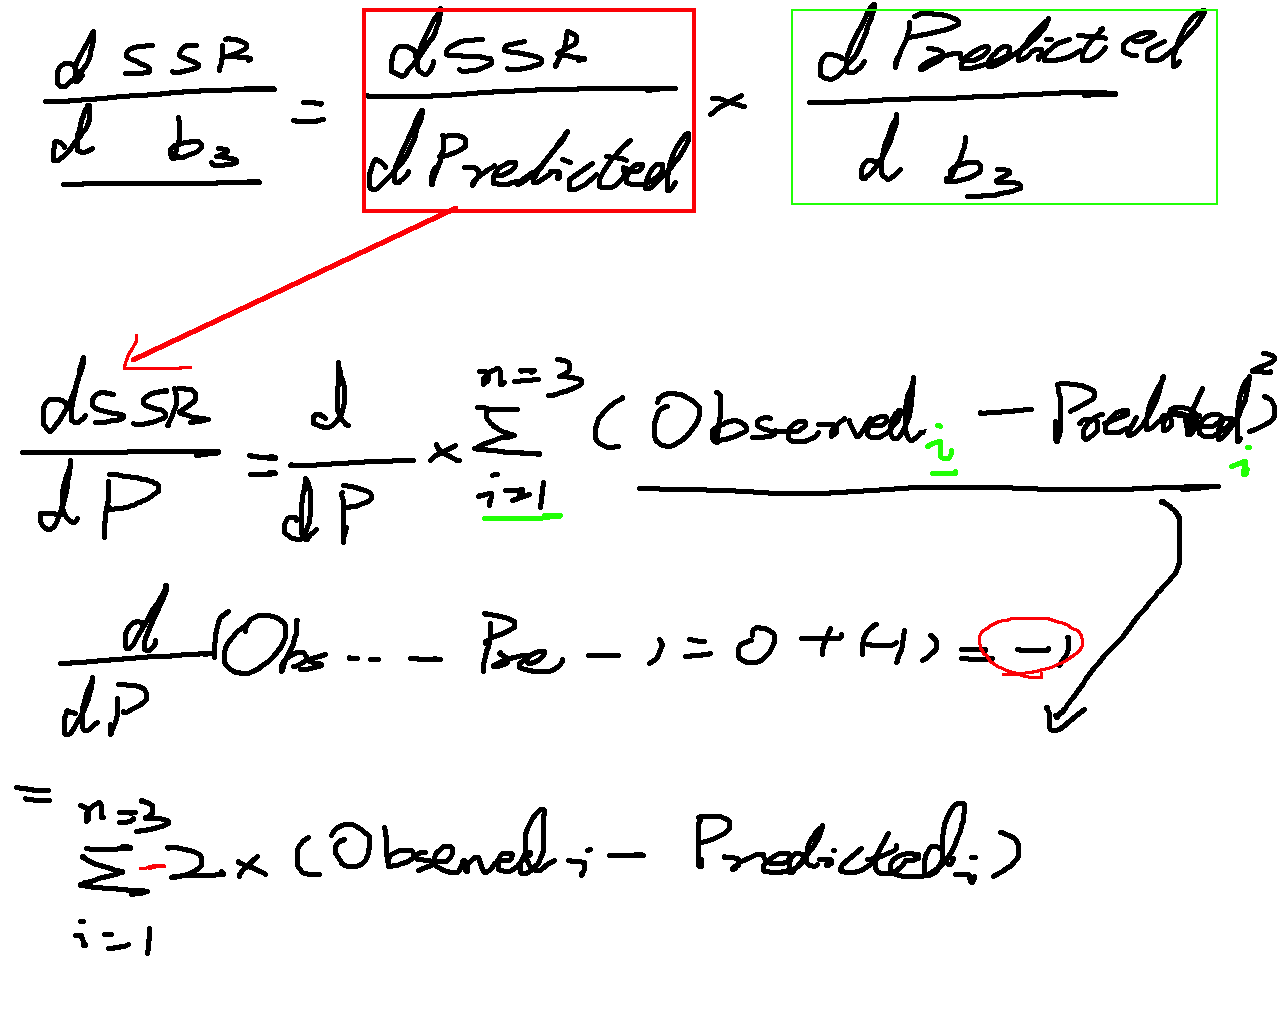 d SSR / d b₃ = d SSR / d Predicted × d Predicted / d b₃
d SSR / d P = d / d P × Σ n=3 i=1 (Observed i − Predicted i)²
d / d P (Obs ... - Pre - ) = 0 + (-1) = -1
= Σ n=3 i=1 -2 × (Observed i − Predicted i)